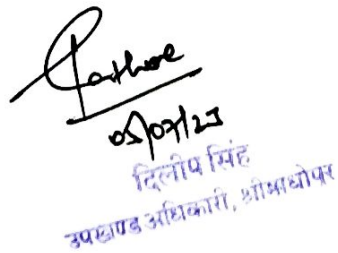 Rathore
05/07/23
दिलीप सिंह
उपखण्ड अधिकारी, श्रीमाधोपुर